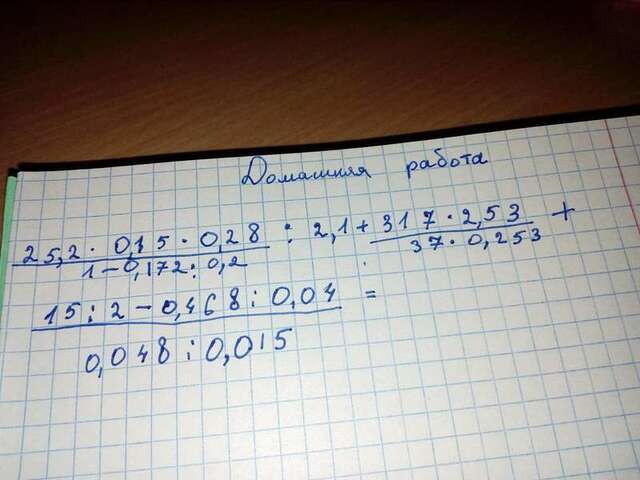 Домашняя работа
25,2 · 0,15 · 0,28 : 2,1 + 317 · 2,53 +
1 - 0,172 : 0,2 37 · 0,253
15 : 2 - 0,468 : 0,04 =
0,048 : 0,015